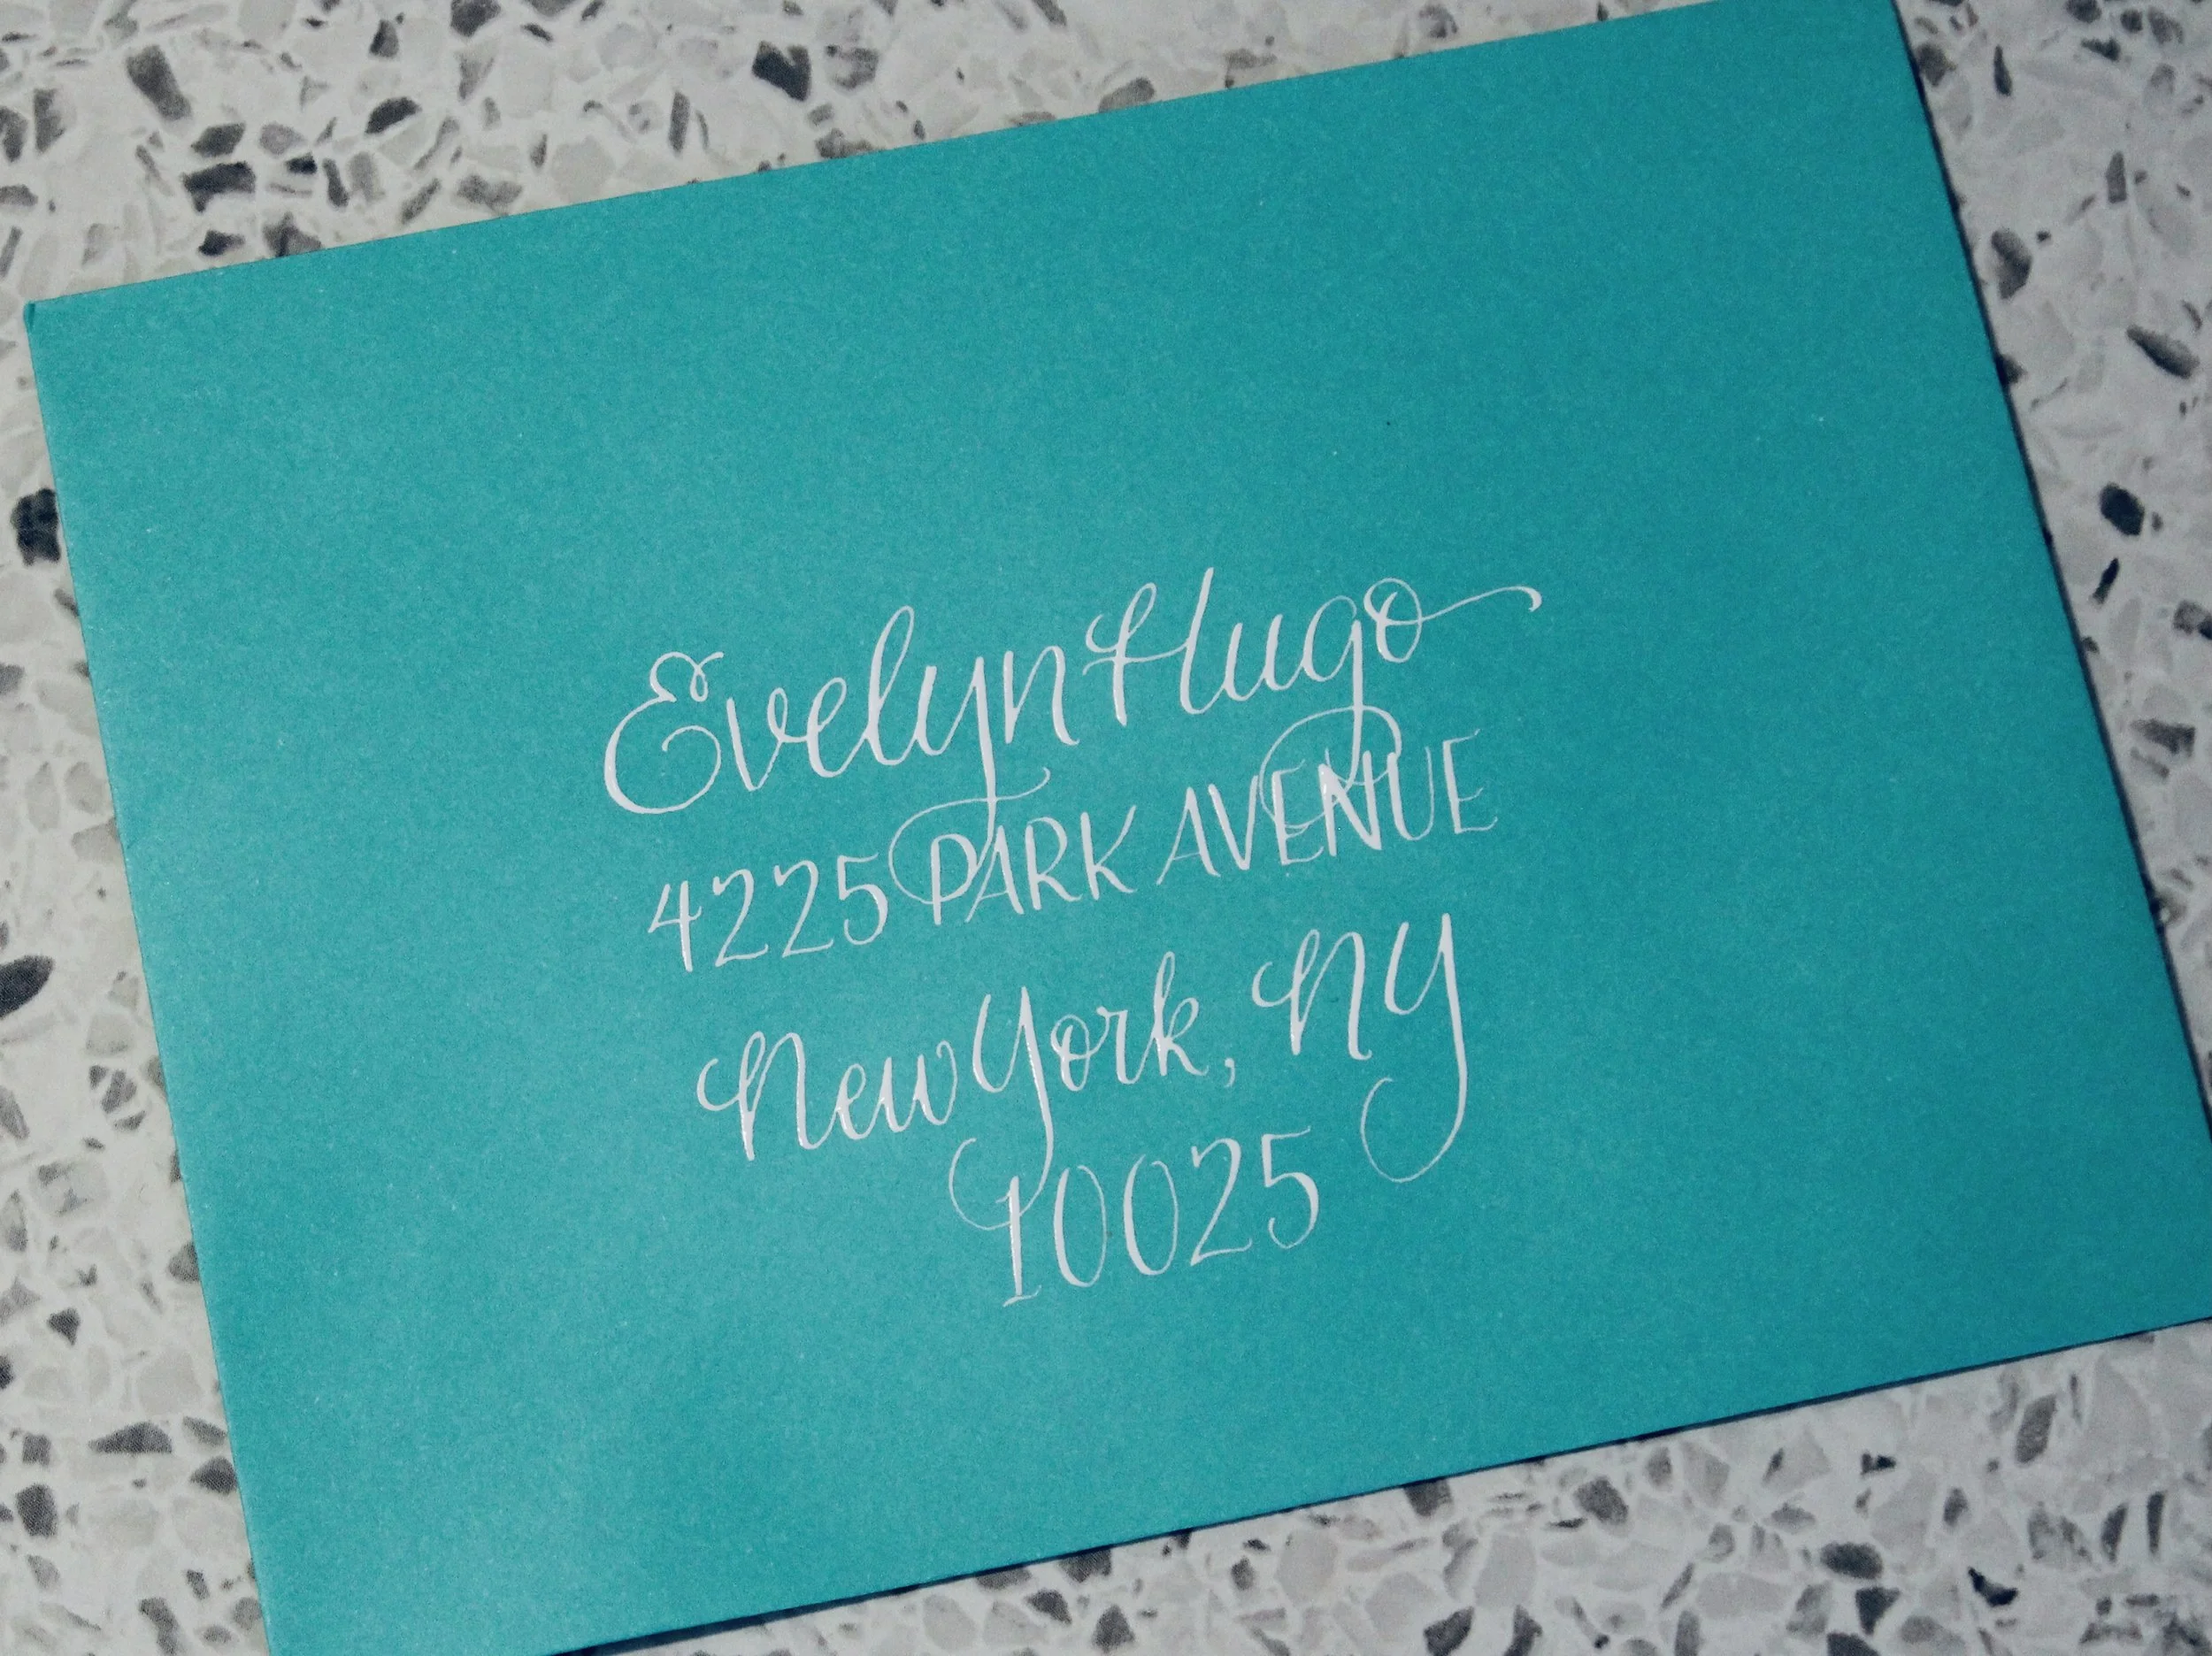 Evelyn Hugo
4225 PARK AVENUE
New York, NY
10025